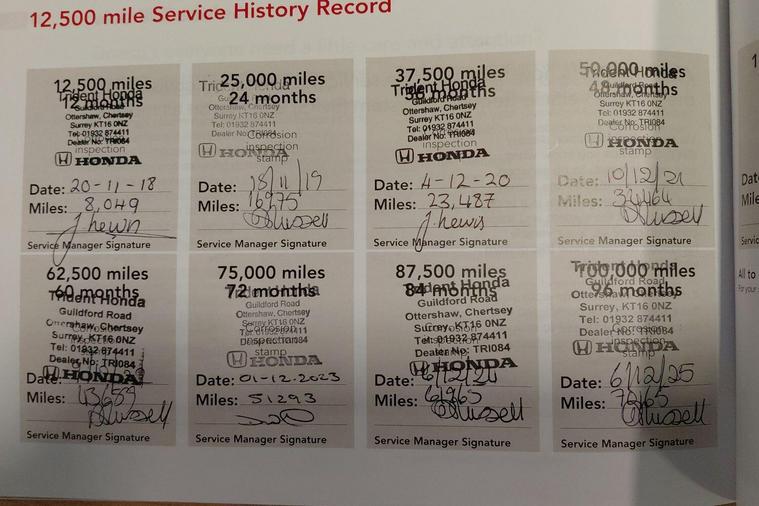 12,500 mile Service History Record
12,500 miles
Trident Honda
12 months
Guildford Road
Ottershaw, Chertsey
Surrey KT16 0NZ
Tel: 01932 874411
Dealer No: TRI084
inspection
HONDA
Date: 20-11-18
Miles: 8,049
J Lewis
Service Manager Signature
25,000 miles
Trident Honda
24 months
Guildford Road
Ottershaw, Chertsey
Surrey KT16 0NZ
Tel: 01932 874411
Dealer No: TRI084
Corrosion
inspection
HONDA
stamp
Date: 18/11/19
Miles: 16,275
Russell
Service Manager Signature
37,500 miles
Trident Honda
36 months
Guildford Road
Ottershaw, Chertsey
Surrey KT16 0NZ
Tel: 01932 874411
Dealer No: TRI084
inspection
HONDA
Date: 4-12-20
Miles: 23,487
J Lewis
Service Manager Signature
50,000 miles
Trident Honda
48 months
Guildford Road
Ottershaw, Chertsey
Surrey KT16 0NZ
Tel: 01932 874411
Dealer No: TRI084
Corrosion
inspection
HONDA
stamp
Date: 10/12/21
Miles:
Russell
Service Manager Signature
62,500 miles
60 months
Trident Honda
Guildford Road
Ottershaw, Chertsey
Surrey, KT16 0NZ
Tel: 01932 874411
Dealer No: TRI084
HONDA
Date:
Miles: 43,659
Russell
Service Manager Signature
75,000 miles
72 months
Trident Honda
Guildford Road
Ottershaw, Chertsey
Surrey KT16 0NZ
Corrosion
Tel: 01932 874411
inspection
stamp
HONDA
Date: 01-12-2023
Miles: 51293
Service Manager Signature
87,500 miles
Trident Honda
84 months
Guildford Road
Ottershaw, Chertsey
Surrey, KT16 0NZ
Tel: 01932 874411
Dealer No: TRI084
HONDA
Date: 6/12/24
Miles:
Russell
Service Manager Signature
Trident Honda
100,000 miles
Guildford Road
96 months
Ottershaw, Chertsey
Surrey, KT16 0NZ
Tel: 01932 874411
Dealer No: TRI084
Corrosion
inspection
HONDA
stamp
Date: 6/12/25
Miles:
Russell
Service Manager Signature
1
Dat
Mile
Servic
All to
For your